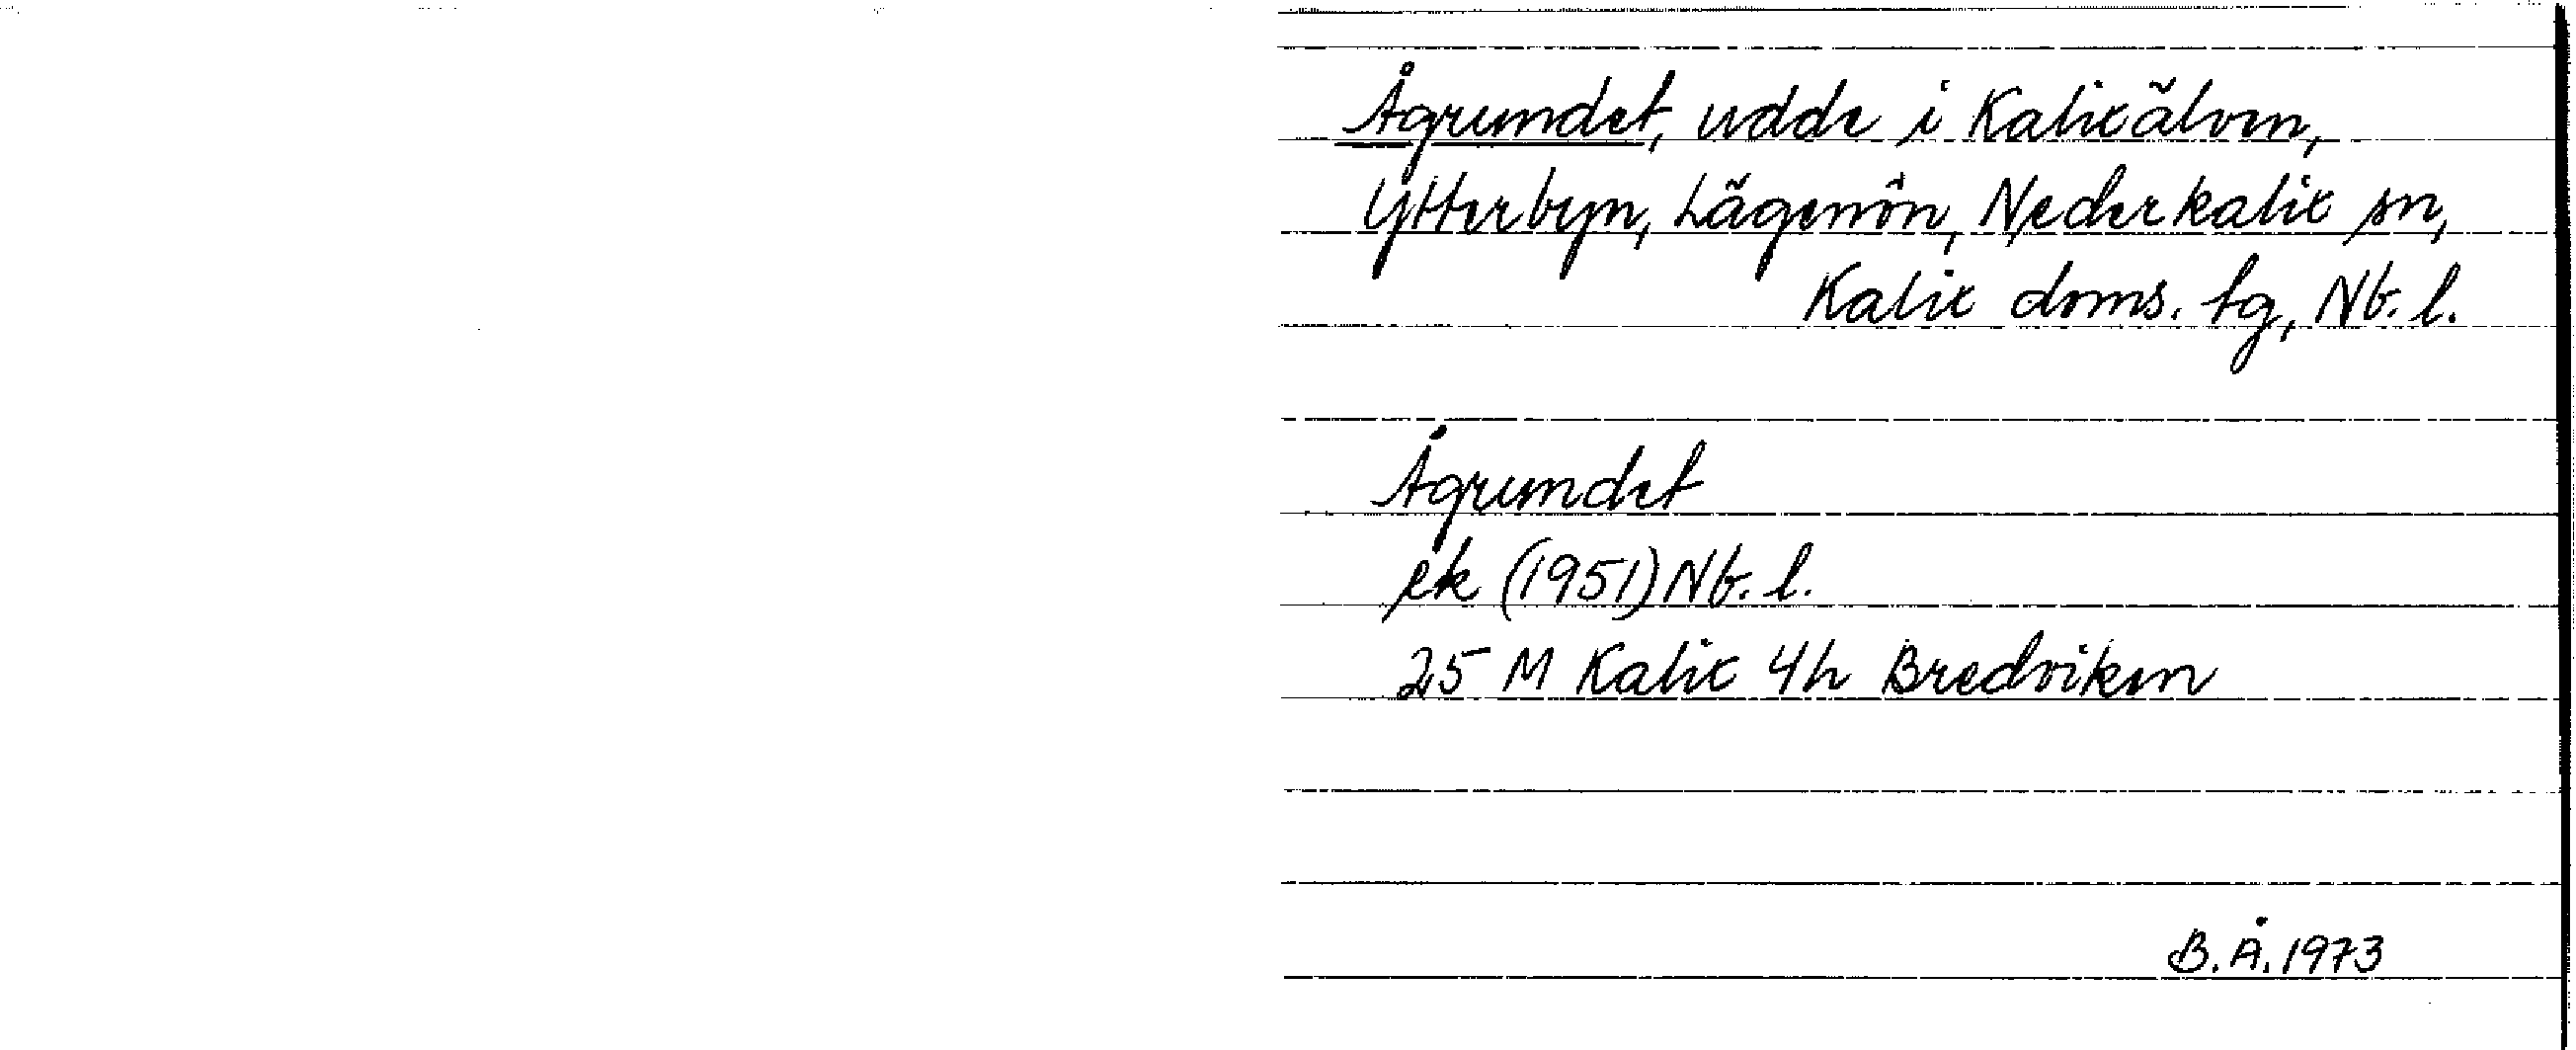 Ågrundet, udde i Kalixälven,
Ytterbyn, Lägenön, Nederkalix sn,
Kalix doms. tg, Nb. l.
Ågrundet
ek (1951) Nb. l.
25 M Kalix 4h Bredviken
B.Å. 1973